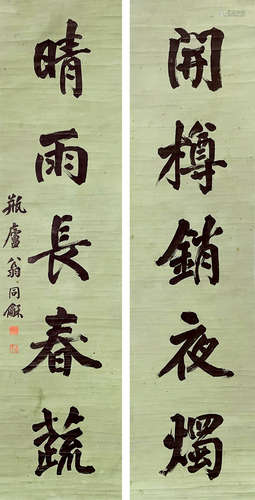 開樽銷夜燭
晴雨長春蔬
瓶廬翁同龢